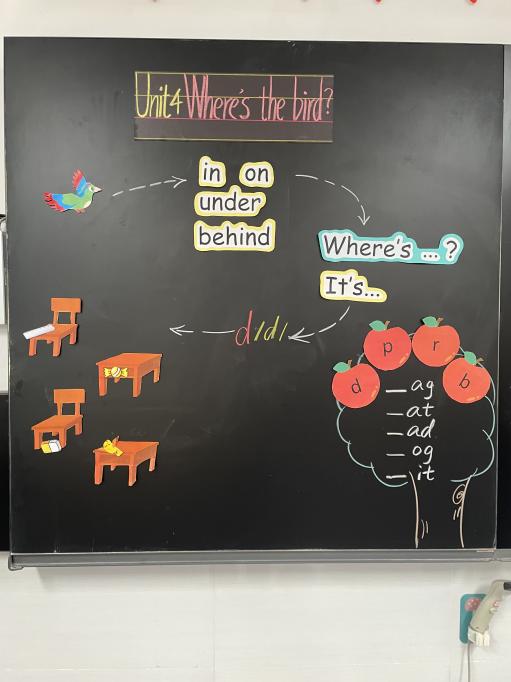 Unit4 Where's the bird?
in on
under
behind
Where's ... ?
It's...
d/d/
d p r b
_ag
_at
_ad
_og
_it